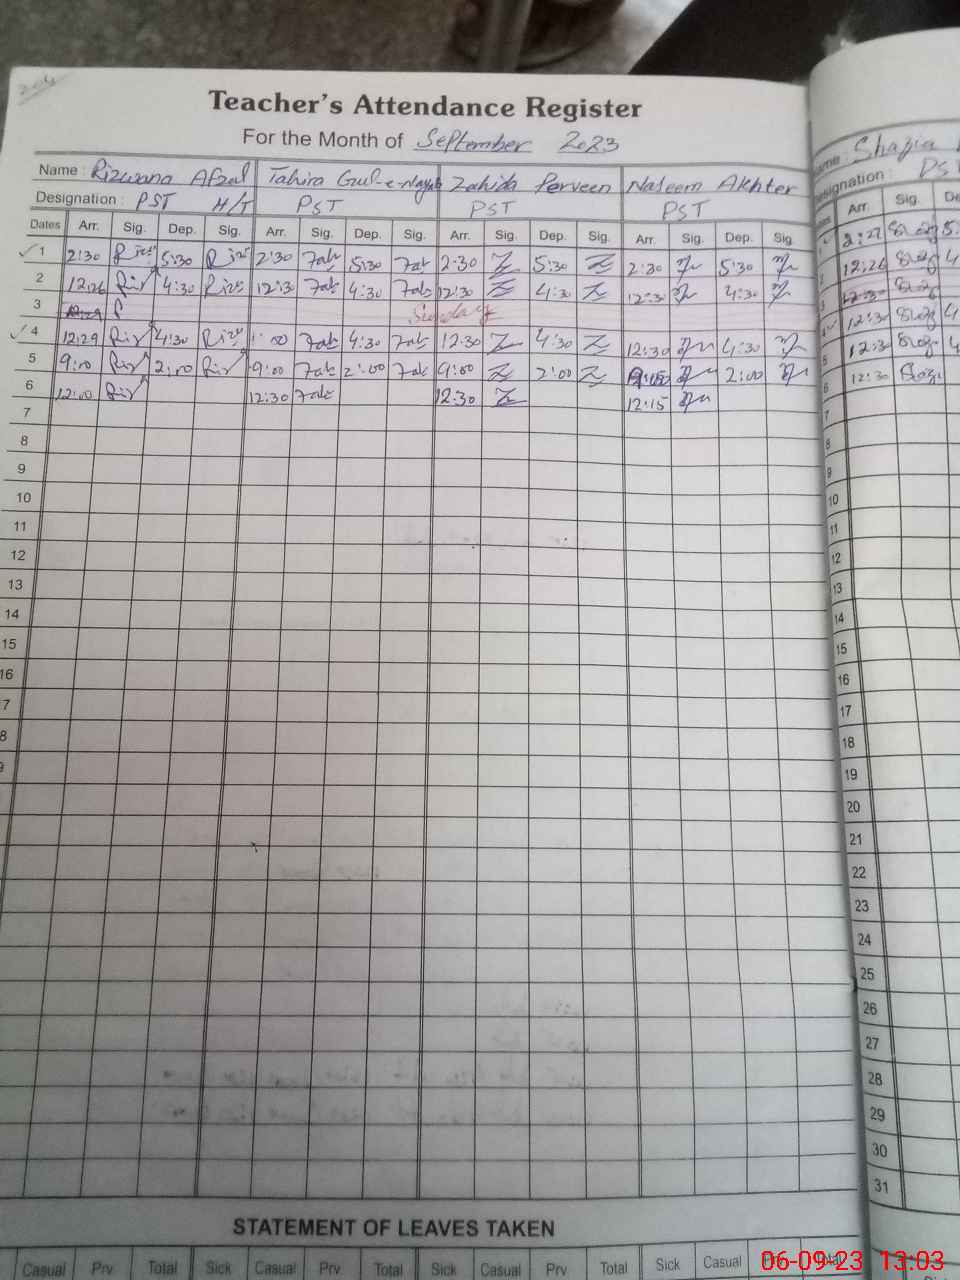 204
Teacher's Attendance Register
For the Month of September 2023
Name : Rizwana Afzal Tahira Gul-e-Nayab Zahida Perveen Naleem Akhter
Designation : PST H/T PST PST PST
Dates Arr. Sig. Dep. Sig. Arr. Sig. Dep. Sig. Arr. Sig. Dep. Sig. Arr. Sig. Dep. Sig.
1 2:30 Riz 5:30 Riz 2:30 Tab 5:30 Tab 2:30 Z 5:30 Z 2:30 5:30
2 12:26 Riz 4:30 Riz 12:30 Tab 4:30 Tab 12:30 Z 4:30 Z 12:30 4:30
3 Sunday
4 12:29 Riz 4:30 Riz 1:00 Tab 4:30 Tab 12:30 Z 4:30 Z 12:30 4:30
5 9:00 Riz 2:00 Riz 9:00 Tab 2:00 Tab 9:00 Z 2:00 Z 2:00
6 12:00 Riz 12:30 Tab 12:30 Z 12:15
7
8
9
10
11
12
13
14
15
16
7
8
9
STATEMENT OF LEAVES TAKEN
Casual Prv Total Sick Casual Prv Total Sick Casual Prv Total Sick Casual Prv Total
ame : Shazia
esignation : PS
Arr. Sig. De
2:27 5:
12:26 4
3 12:30
12:30 4
5 12:30 4
6 12:30
7
8
9
10
11
12
13
14
15
16
17
18
19
20
21
22
23
24
25
26
27
28
29
30
31
06-09-23 13:03